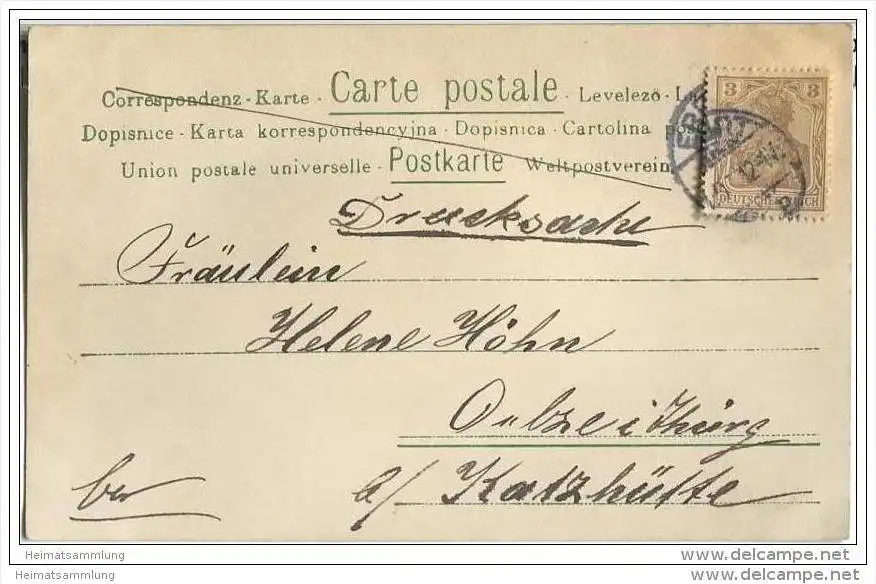 Correspondenz-Karte · Carte postale · Levelező-L
Dopisnice · Karta korrespondencyjna · Dopisnica · Cartolina pos
Union postale universelle · Postkarte · Weltpostverein
3 3
DEUTSCHES REICH
Drucksache
Fräulein
Helene Höhn
Oelze i/Thürg
a/ Katzhütte
Heimatsammlung
Heimatsammlung
posted on delcampe.net
posted on delcampe.net